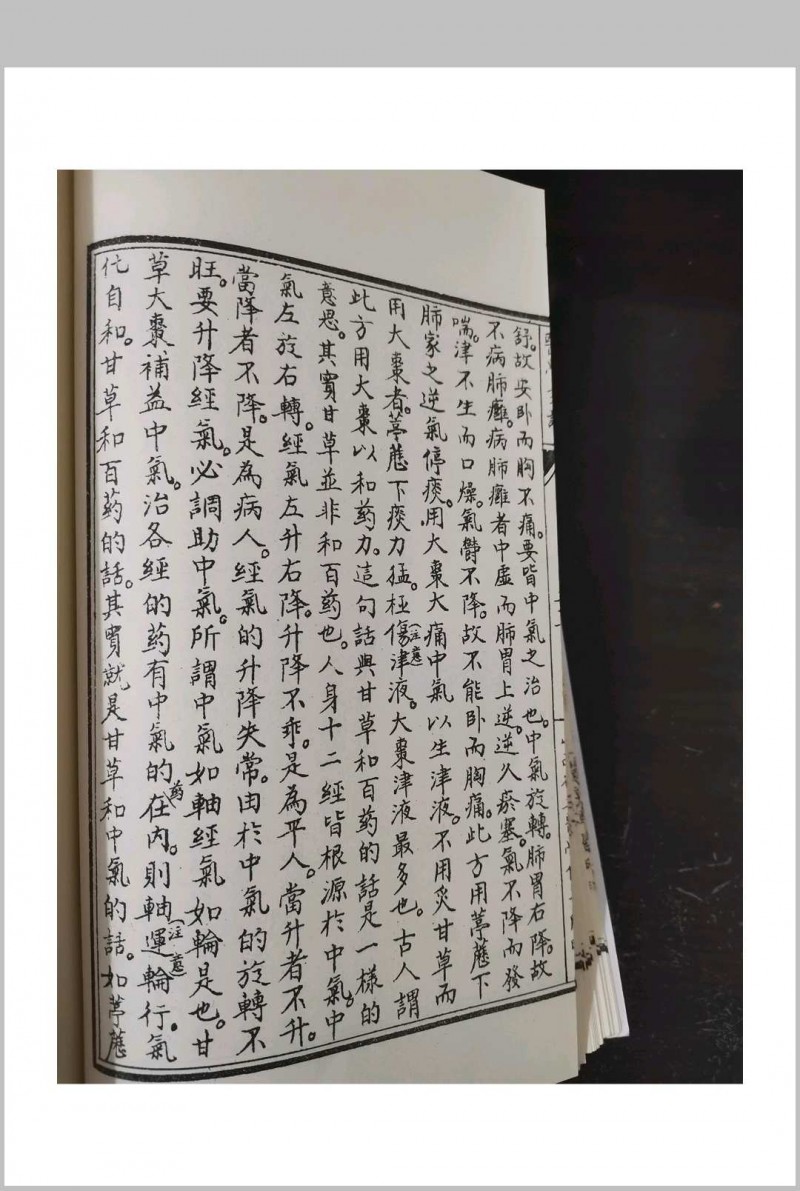 舒。故安卧而胸不痛。要皆中氣之治也。中氣旋轉。肺胃右降。故
不病肺癰。病肺癰者中虛而肺胃上逆。逆久瘀塞。氣不降而發
喘。津不生而口燥。氣鬱不降。故不能卧而胸痛。此方用葶藶下
肺家之逆氣停痰。用大棗大補中氣以生津液。不用炙甘草而
用大棗者。葶藶下痰力猛。極傷津液。(注意)大棗津液最多也。古人謂
此方用大棗以和药力。這句話與甘草和百药的話是一樣的
意思。其實甘草並非和百药也。人身十二經皆根源於中氣。中
氣左旋右轉。經氣左升右降。升降不乖。是為平人。當升者不升。
當降者不降。是為病人。經氣的升降失常。由於中氣的旋轉不
旺。要升降經氣。必調助中氣。所謂中氣如軸經氣如輪是也。甘
草大棗補益中氣。治各經的药有中氣的药在內。則軸運輪行。(注意)氣
化自和。甘草和百药的話。其實就是甘草和中氣的話。如葶藶